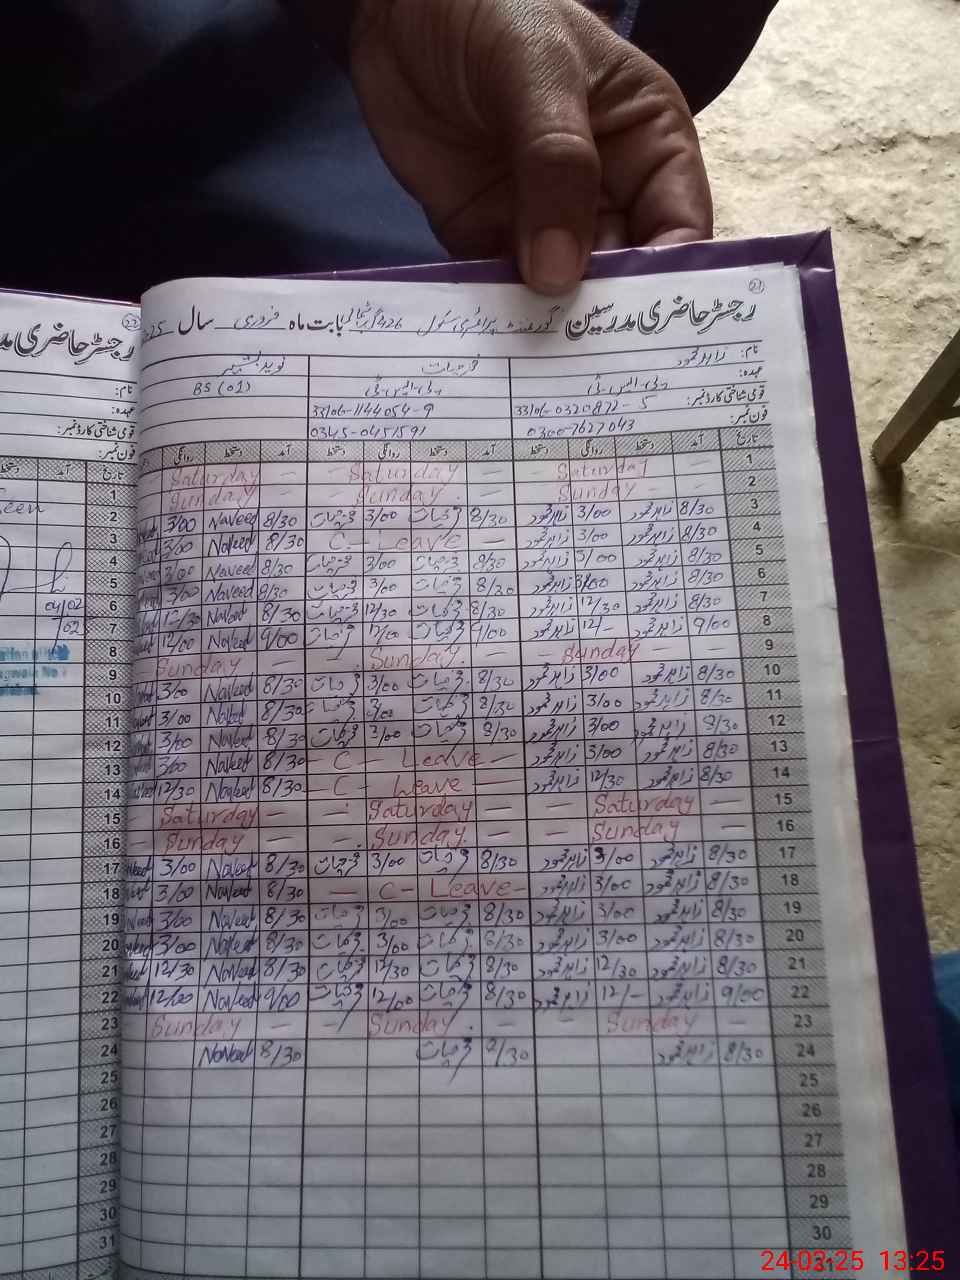 23
رجسٹر حاضری مدرسین گورنمنٹ پرائمری سکول 426 بابت ماہ فروری سال 2025
نام: زاہد محمود فرحیات نوید
عہدہ: پی-ایس-ٹی پی-ایس-ٹی BS (01)
قومی شناختی کارڈ نمبر: 33106-0320872-5 33106-1144054-9
فون نمبر: 0300-7627043 0345-0451591
تاریخ آمد دستخط روانگی دستخط آمد دستخط روانگی دستخط آمد دستخط روانگی
1 — Saturday — — Saturday — — Saturday —
2 — Sunday — — Sunday — — Sunday —
3 8/30 زاہد محمود 3/00 زاہد محمود 8/30 فرحیات 3/00 فرحیات 8/30 Naveed 3/00
4 8/30 زاہد محمود 3/00 زاہد محمود — C - Leave — 8/30 Naveed 3/00
5 8/30 زاہد محمود 3/00 زاہد محمود 8/30 فرحیات 3/00 فرحیات 8/30 Naveed 3/00
6 8/30 زاہد محمود 3/00 زاہد محمود 8/30 فرحیات 3/00 فرحیات 8/30 Naveed 3/00
7 8/30 زاہد محمود 12/30 زاہد محمود 8/30 فرحیات 12/30 فرحیات 8/30 Naveed 12/30
8 9/00 زاہد محمود 12/- زاہد محمود 9/00 فرحیات 12/00 فرحیات 9/00 Naveed 12/00
9 — Sunday — — Sunday — — Sunday
10 8/30 زاہد محمود 3/00 زاہد محمود 8/30 فرحیات 3/00 فرحیات 8/30 Naveed 3/00
11 8/30 زاہد محمود 3/00 زاہد محمود 8/30 فرحیات 3/00 فرحیات 8/30 Naveed 3/00
12 8/30 زاہد محمود 3/00 زاہد محمود 8/30 فرحیات 3/00 فرحیات 8/30 Naveed 3/00
13 8/30 زاہد محمود 3/00 زاہد محمود — C — Leave — 8/30 Naveed 3/00
14 8/30 زاہد محمود 12/30 زاہد محمود — C — Leave — 8/30 Naveed 12/30
15 — Saturday — — Saturday — — Saturday —
16 — Sunday — — Sunday — — Sunday —
17 8/30 زاہد محمود 3/00 زاہد محمود 8/30 فرحیات 3/00 فرحیات 8/30 Naveed 3/00
18 8/30 زاہد محمود 3/00 زاہد محمود — C - Leave - 8/30 Naveed 3/00
19 8/30 زاہد محمود 3/00 زاہد محمود 8/30 فرحیات 3/00 فرحیات 8/30 Naveed 3/00
20 8/30 زاہد محمود 3/00 زاہد محمود 8/30 فرحیات 3/00 فرحیات 8/30 Naveed 3/00
21 8/30 زاہد محمود 12/30 زاہد محمود 8/30 فرحیات 12/30 فرحیات 8/30 Naveed 12/30
22 9/00 زاہد محمود 12/- زاہد محمود 8/30 فرحیات 12/00 فرحیات 9/00 Naveed 12/00
23 — Sunday — — Sunday — — Sunday
24 8/30 زاہد محمود 8/30 فرحیات 8/30 Naveed
25
26
27
28
29
30
31
22
رجسٹر حاضری
نام:
عہدہ:
قومی شناختی کارڈ نمبر:
فون نمبر:
تاریخ آمد دستخط
1
2
3
4
5
6 04/02
7 /02
8
9
10
11
12
13
14
15
16
17
18
19
20
21
22
23
24
25
26
27
28
29
30
31
24-02-25 13:25